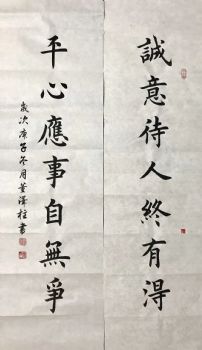 誠意待人終有得
平心應事自無爭
歲次庚子冬月黃澤柱書